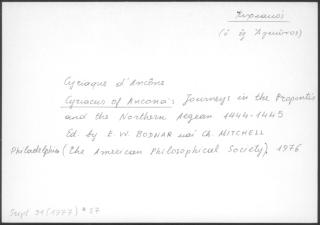 Κυριακός
(ὁ ἐξ Ἀγκῶνος)
Cyriaque d'Ancône
Cyriacus of Ancona's Journeys in the Propontis
and the Northern Aegean 1444-1445
Ed. by E. W. BODNAR καὶ CH. MITCHELL
Philadelphia (The American Philosophical Society), 1976
(1977) * 57